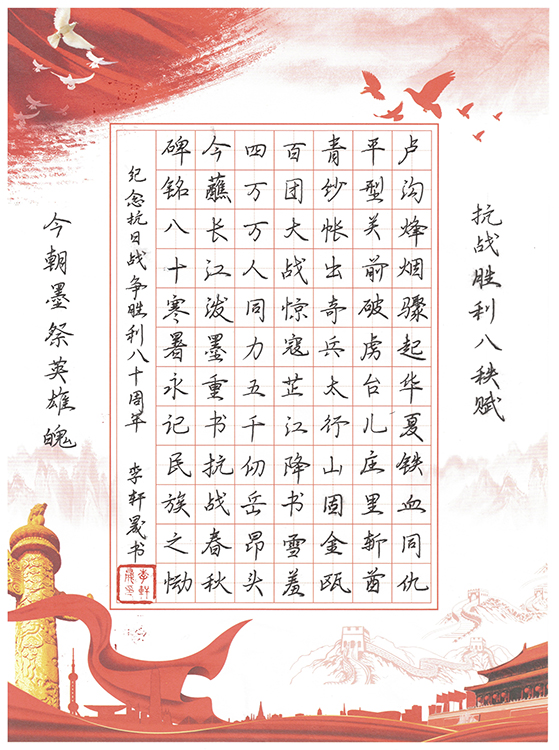 抗战胜利八秩赋
卢沟烽烟骤起华夏铁血同仇
平型关前破虏台儿庄里斩酋
青纱帐出奇兵太行山固金瓯
百团大战惊寇芷江降书雪羞
四万万人同力五千仞岳昂头
今蘸长江泼墨重书抗战春秋
碑铭八十寒暑永记民族之恸
纪念抗日战争胜利八十周年 李轩晟书
今朝墨祭英雄魄